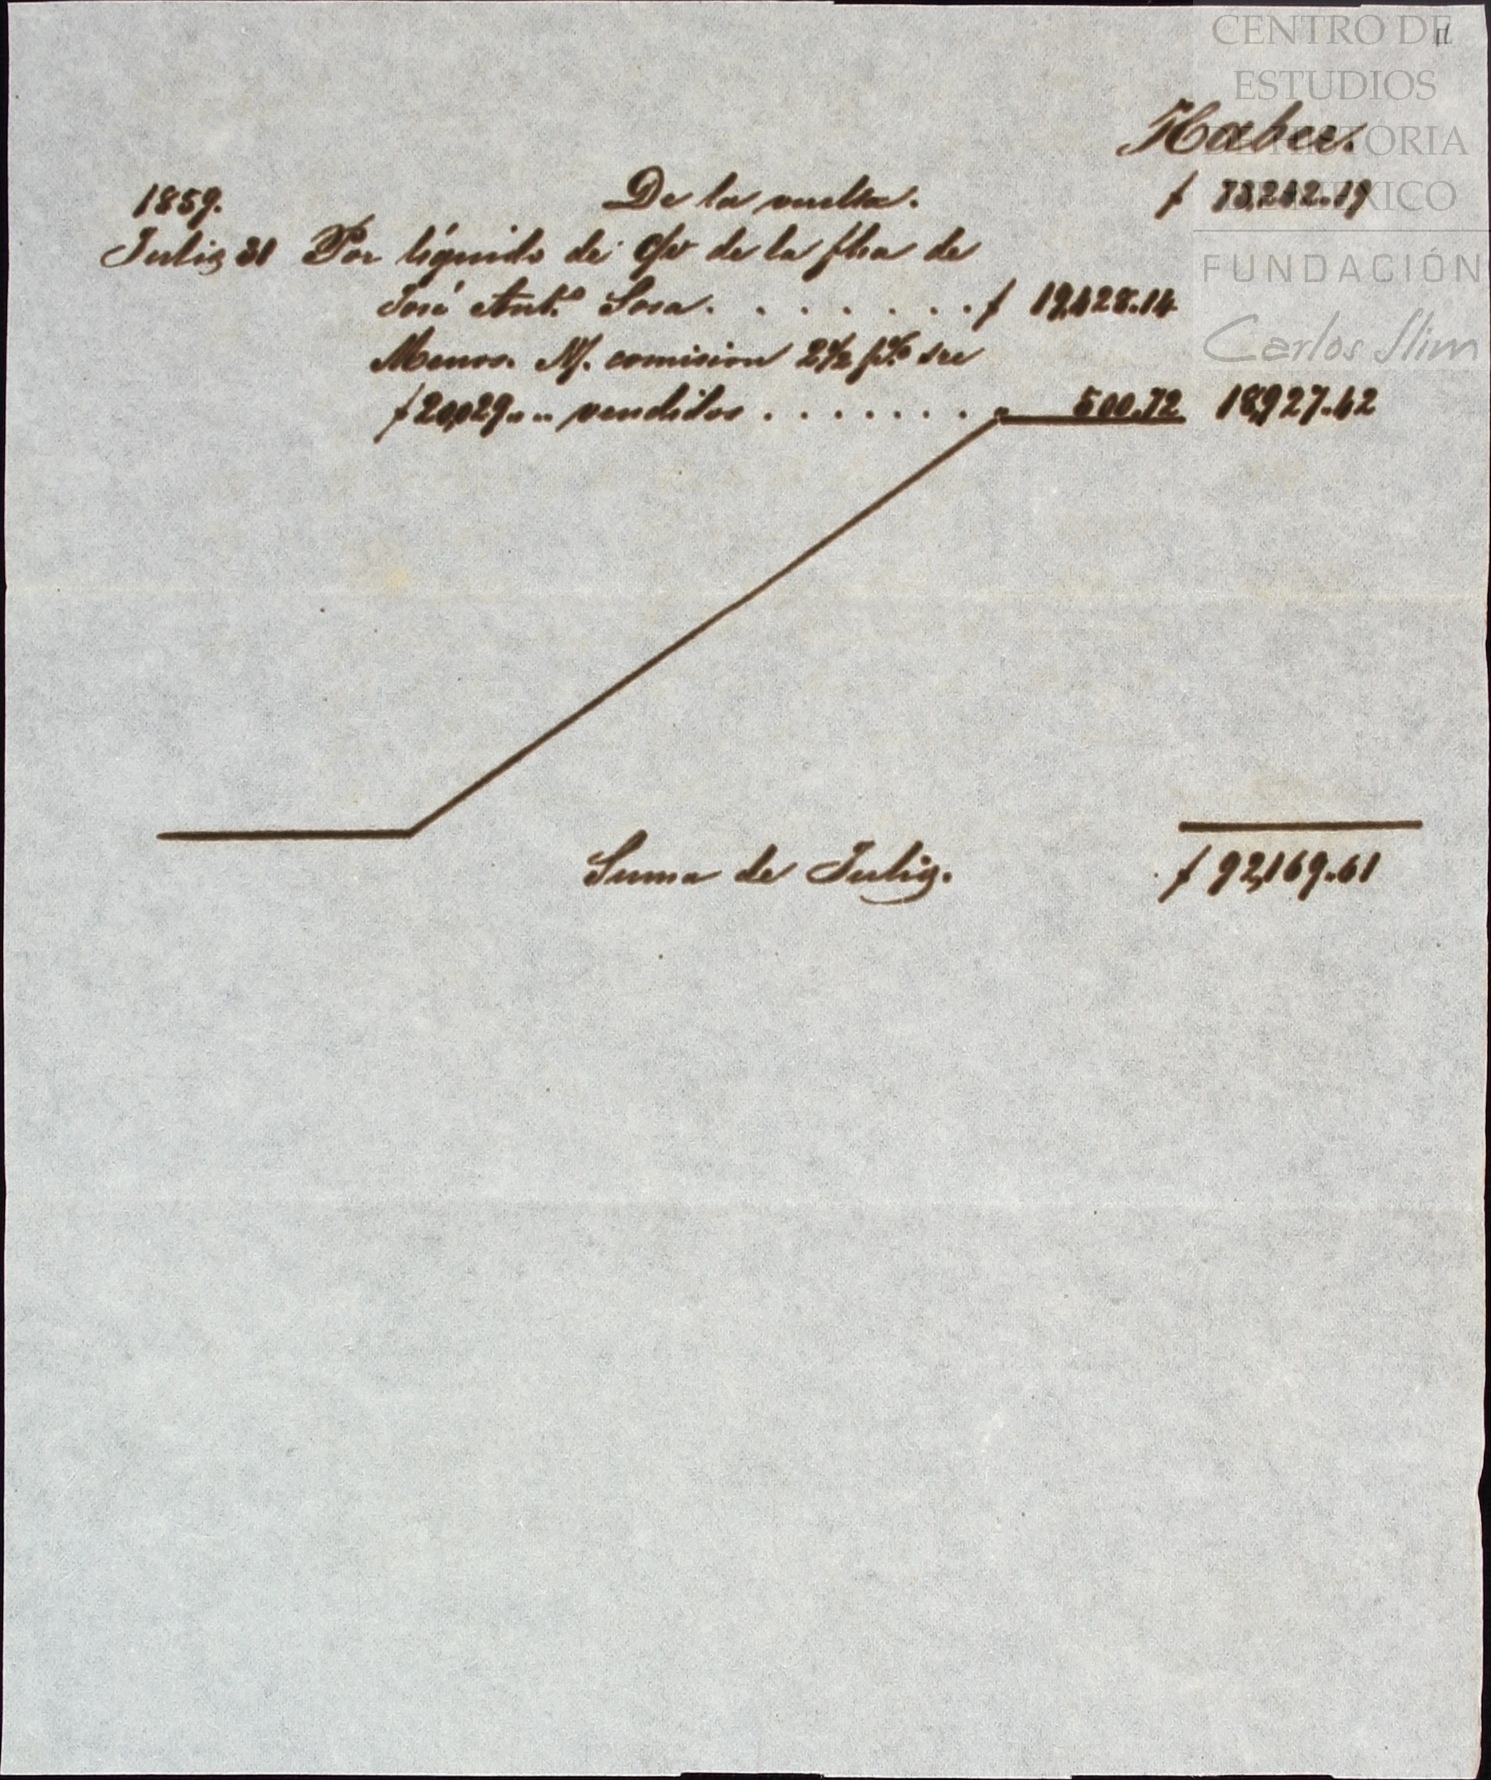 CENTRO DE
ESTUDIOS
DE HISTORIA
DE MÉXICO
FUNDACIÓN
Carlos Slim
Haber.
1859. De la vuelta. $ 73,242.19
Julio 31 Por líquido de c/v de la fha de
José Ant.º Sosa. . . . . . . . $ 19,428.14
Menos. N/. comision 2½ p% sre
$ 20,029.. .. vendidos . . . . . . . . 500.72 18,927.42
Suma de Julio. $ 92,169.61